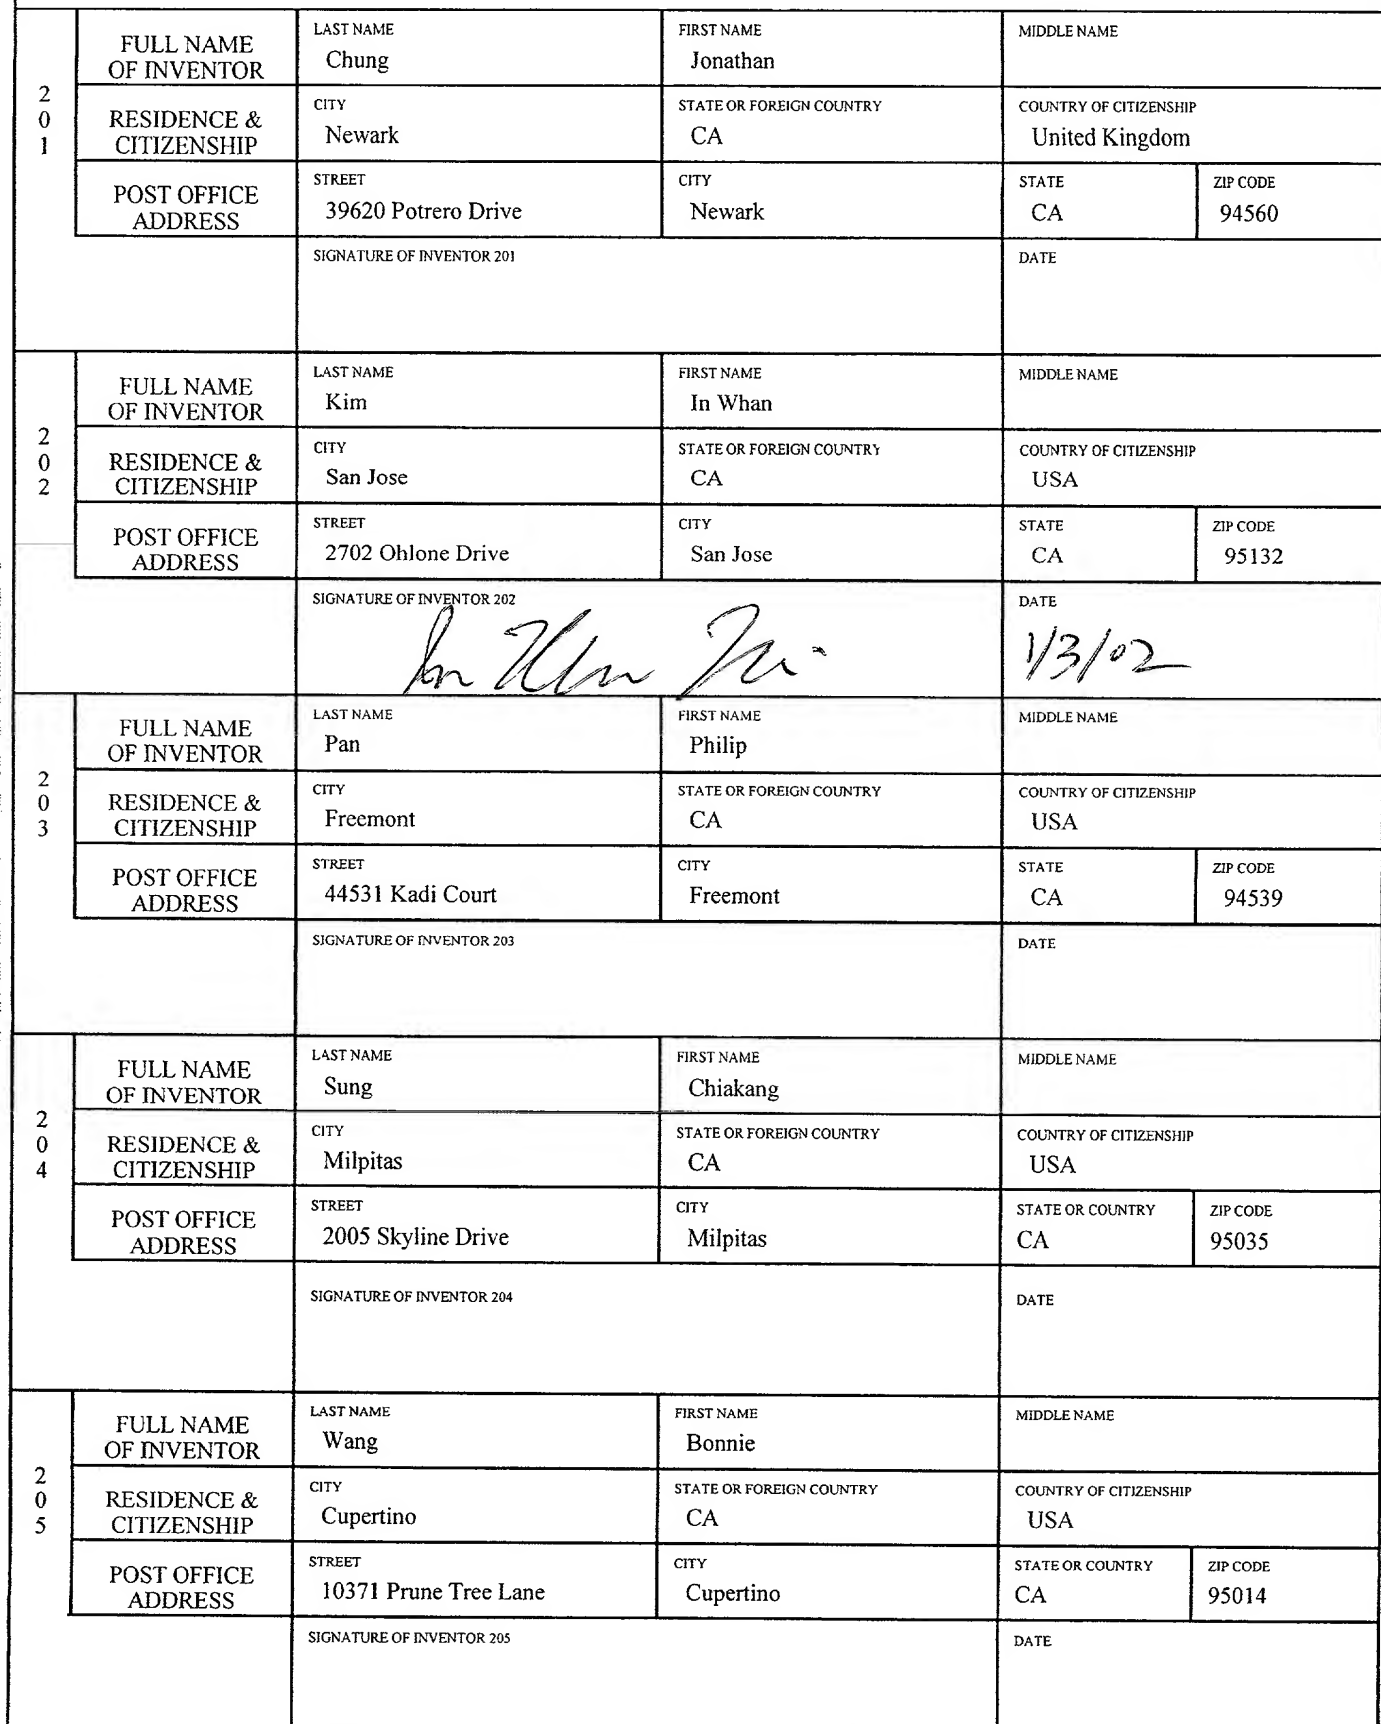 FULL NAME OF INVENTOR
LAST NAME
Chung
FIRST NAME
Jonathan
MIDDLE NAME
201
RESIDENCE & CITIZENSHIP
CITY
Newark
STATE OR FOREIGN COUNTRY
CA
COUNTRY OF CITIZENSHIP
United Kingdom
POST OFFICE ADDRESS
STREET
39620 Potrero Drive
CITY
Newark
STATE
CA
ZIP CODE
94560
SIGNATURE OF INVENTOR 201
DATE
FULL NAME OF INVENTOR
LAST NAME
Kim
FIRST NAME
In Whan
MIDDLE NAME
202
RESIDENCE & CITIZENSHIP
CITY
San Jose
STATE OR FOREIGN COUNTRY
CA
COUNTRY OF CITIZENSHIP
USA
POST OFFICE ADDRESS
STREET
2702 Ohlone Drive
CITY
San Jose
STATE
CA
ZIP CODE
95132
SIGNATURE OF INVENTOR 202
DATE
1/3/02
FULL NAME OF INVENTOR
LAST NAME
Pan
FIRST NAME
Philip
MIDDLE NAME
203
RESIDENCE & CITIZENSHIP
CITY
Freemont
STATE OR FOREIGN COUNTRY
CA
COUNTRY OF CITIZENSHIP
USA
POST OFFICE ADDRESS
STREET
44531 Kadi Court
CITY
Freemont
STATE
CA
ZIP CODE
94539
SIGNATURE OF INVENTOR 203
DATE
FULL NAME OF INVENTOR
LAST NAME
Sung
FIRST NAME
Chiakang
MIDDLE NAME
204
RESIDENCE & CITIZENSHIP
CITY
Milpitas
STATE OR FOREIGN COUNTRY
CA
COUNTRY OF CITIZENSHIP
USA
POST OFFICE ADDRESS
STREET
2005 Skyline Drive
CITY
Milpitas
STATE OR COUNTRY
CA
ZIP CODE
95035
SIGNATURE OF INVENTOR 204
DATE
FULL NAME OF INVENTOR
LAST NAME
Wang
FIRST NAME
Bonnie
MIDDLE NAME
205
RESIDENCE & CITIZENSHIP
CITY
Cupertino
STATE OR FOREIGN COUNTRY
CA
COUNTRY OF CITIZENSHIP
USA
POST OFFICE ADDRESS
STREET
10371 Prune Tree Lane
CITY
Cupertino
STATE OR COUNTRY
CA
ZIP CODE
95014
SIGNATURE OF INVENTOR 205
DATE